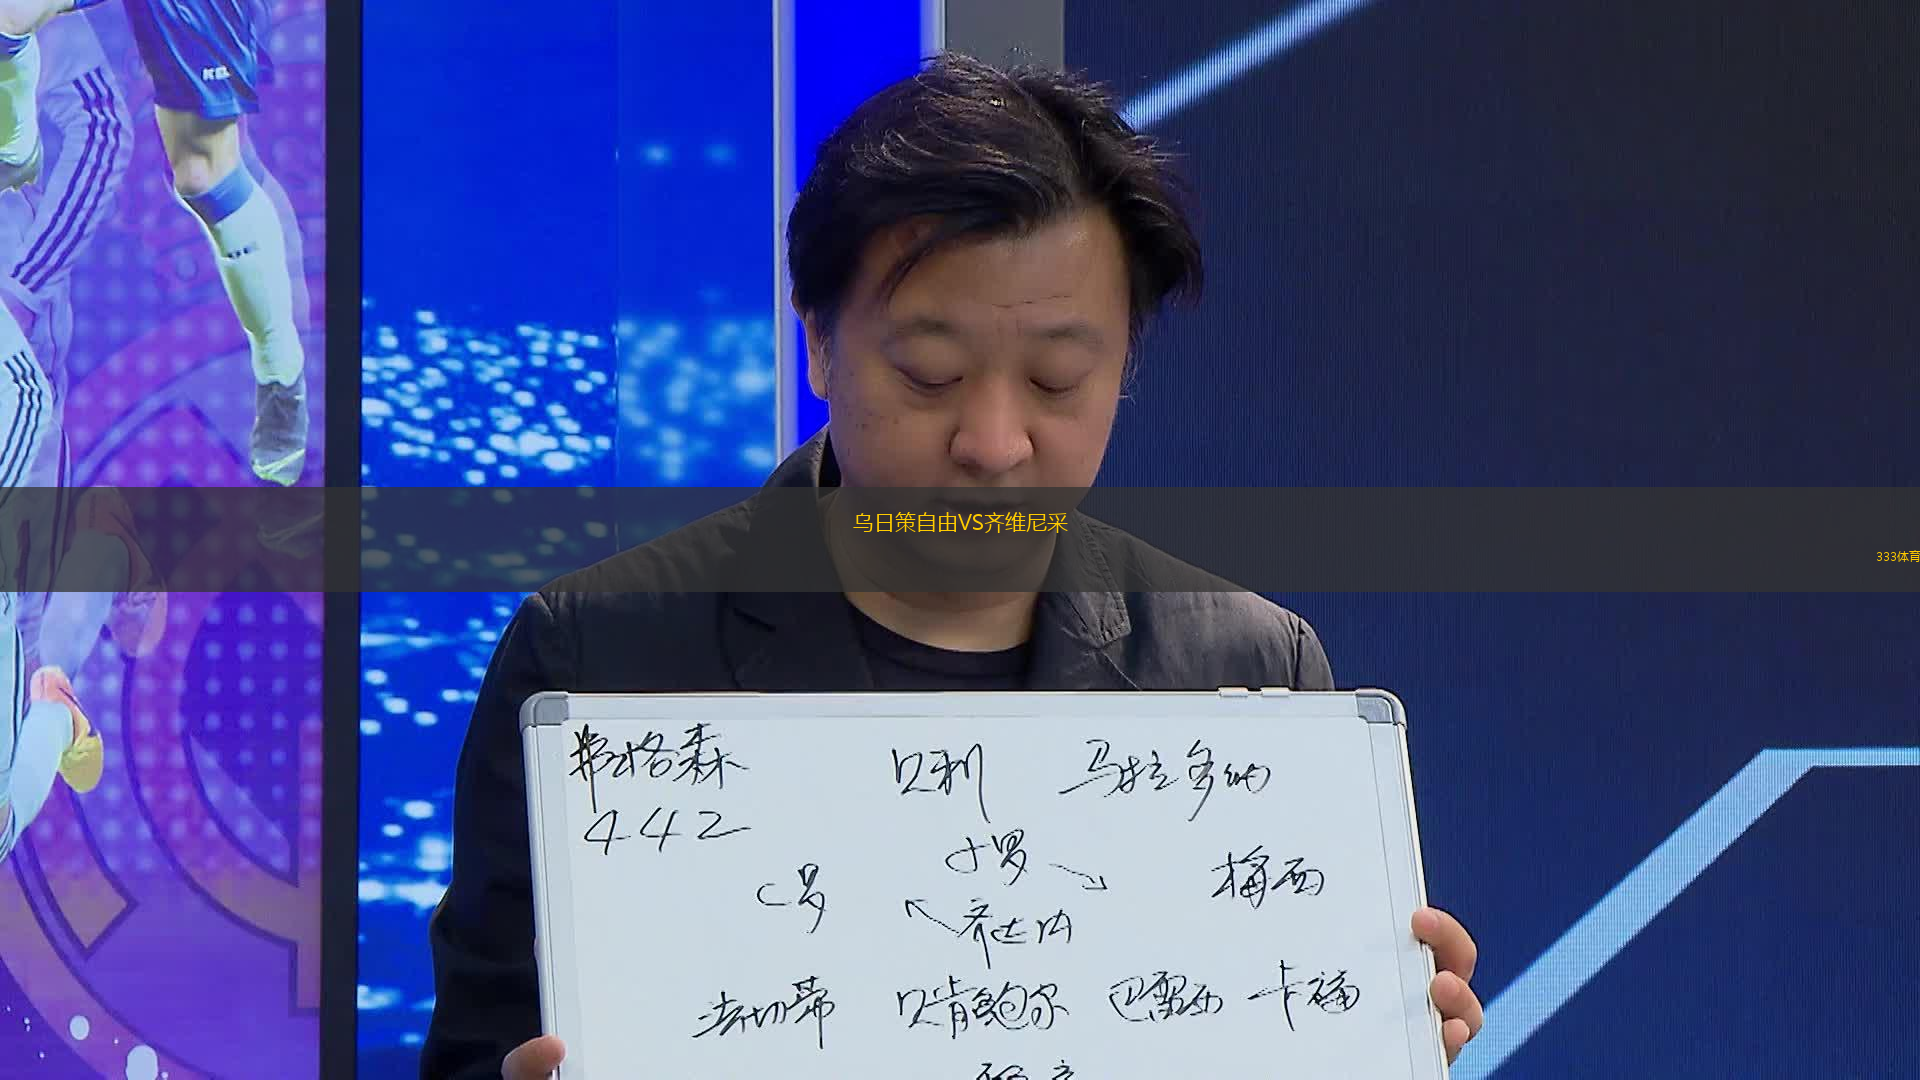 乌日策自由VS齐维尼采
333体育
弗格森 贝利 马拉多纳
442
小罗
C罗 梅西
齐达内
法切蒂 贝肯鲍尔 巴雷西 卡福